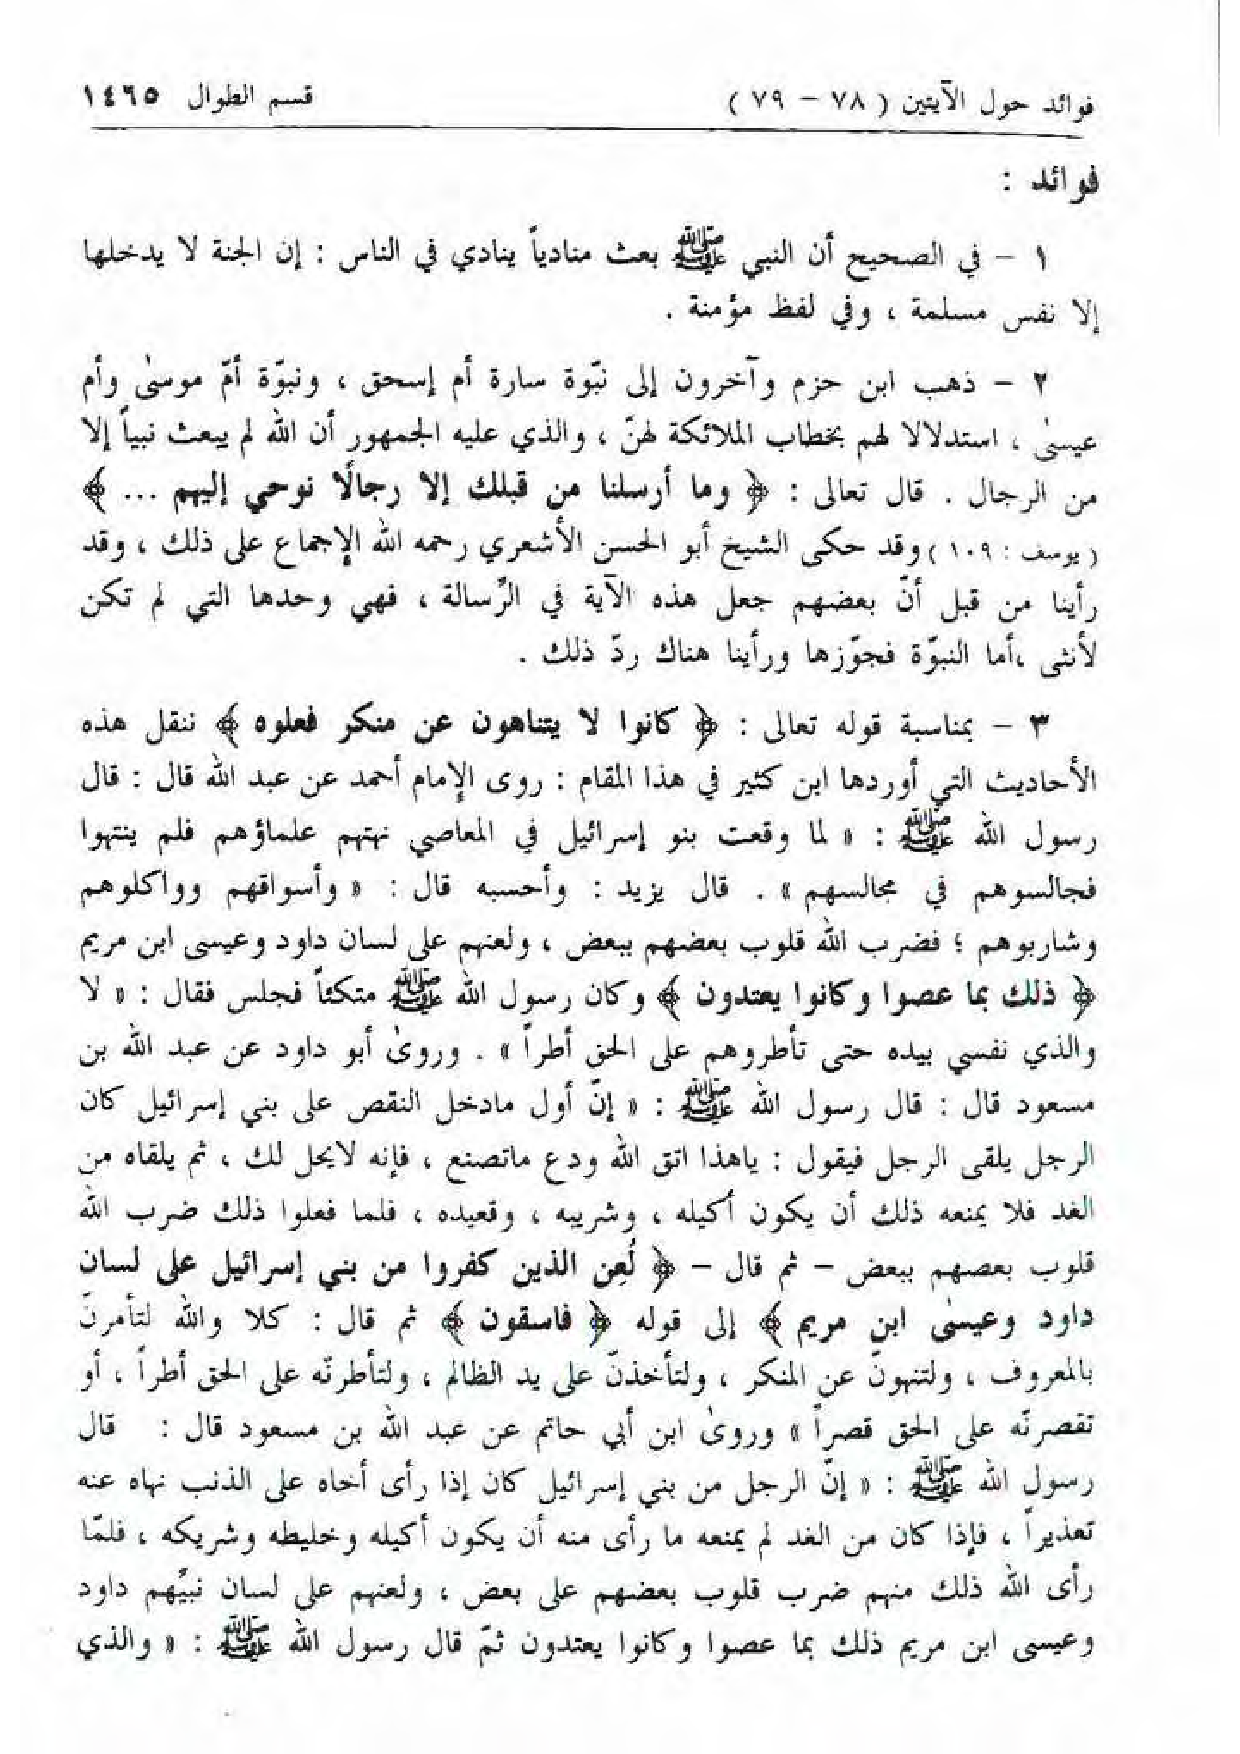 فوائد حول الآيتين ( ٧٨ – ٧٩ ) قسم الطوال ١٤٦٥
فوائد :
١ – في الصحيح أن النبي ﷺ بعث منادياً ينادي في الناس : إن الجنة لا يدخلها
إلا نفس مسلمة ، وفي لفظ مؤمنة .
٢ – ذهب ابن حزم وآخرون إلى نبّوة سارة أم إسحق ، ونبوّة أمّ موسىٰ وأم
عيسىٰ ، استدلالا لهم بخطاب الملائكة لهنّ ، والذي عليه الجمهور أن الله لم يبعث نبياً إلا
من الرجال . قال تعالى : ﴿ وما أرسلنا من قبلك إلا رجالًا نوحي إليهم ... ﴾
( يوسف : ١٠٩ ) وقد حكى الشيخ أبو الحسن الأشعري رحمه الله الإجماع على ذلك ، وقد
رأينا من قبل أنّ بعضهم جعل هذه الآية في الرِّسالة ، فهي وحدها التي لم تكن
لأنثى ،أما النبوّة فجوّزها ورأينا هناك ردّ ذلك .
٣ – بمناسبة قوله تعالى : ﴿ كانوا لا يتناهون عن منكر فعلوه ﴾ ننقل هذه
الأحاديث التي أوردها ابن كثير في هذا المقام : روى الإمام أحمد عن عبد الله قال : قال
رسول الله ﷺ : « لما وقعت بنو إسرائيل في المعاصي نهتهم علماؤهم فلم ينتهوا
فجالسوهم في مجالسهم » . قال يزيد : وأحسبه قال : « وأسواقهم وواكلوهم
وشاربوهم ؛ فضرب الله قلوب بعضهم ببعض ، ولعنهم على لسان داود وعيسى ابن مريم
﴿ ذلك بما عصوا وكانوا يعتدون ﴾ وكان رسول الله ﷺ متكئاً فجلس فقال : « لا
والذي نفسي بيده حتى تأطروهم على الحق أطراً » . وروىٰ أبو داود عن عبد الله بن
مسعود قال : قال رسول الله ﷺ : « إنّ أول مادخل النقص على بني إسرائيل كان
الرجل يلقى الرجل فيقول : ياهذا اتق الله ودع ماتصنع ، فإنه لايحل لك ، ثم يلقاه من
الغد فلا يمنعه ذلك أن يكون أكيله ، وشريبه ، وقعيده ، فلما فعلوا ذلك ضرب الله
قلوب بعصهم ببعض – ثم قال – ﴿ لُعِن الذين كفروا من بني إسرائيل على لسان
داود وعيسىٰ ابن مريم ﴾ إلى قوله ﴿ فاسقون ﴾ ثم قال : كلا والله لتأمرنّ
بالمعروف ، ولتنهونّ عن المنكر ، ولتأخذنّ على يد الظالم ، ولتأطرنّه على الحق أطراً ، أو
تقصرنّه على الحق قصراً » وروىٰ ابن أبي حاتم عن عبد الله بن مسعود قال : قال
رسول الله ﷺ : « إنّ الرجل من بني إسرائيل كان إذا رأى أخاه على الذنب نهاه عنه
تعذيراً ، فإذا كان من الغد لم يمنعه ما رأى منه أن يكون أكيله وخليطه وشريكه ، فلمّا
رأى الله ذلك منهم ضرب قلوب بعضهم على بعض ، ولعنهم على لسان نبيِّهم داود
وعيسى ابن مريم ذلك بما عصوا وكانوا يعتدون ثمّ قال رسول الله ﷺ : « والذي